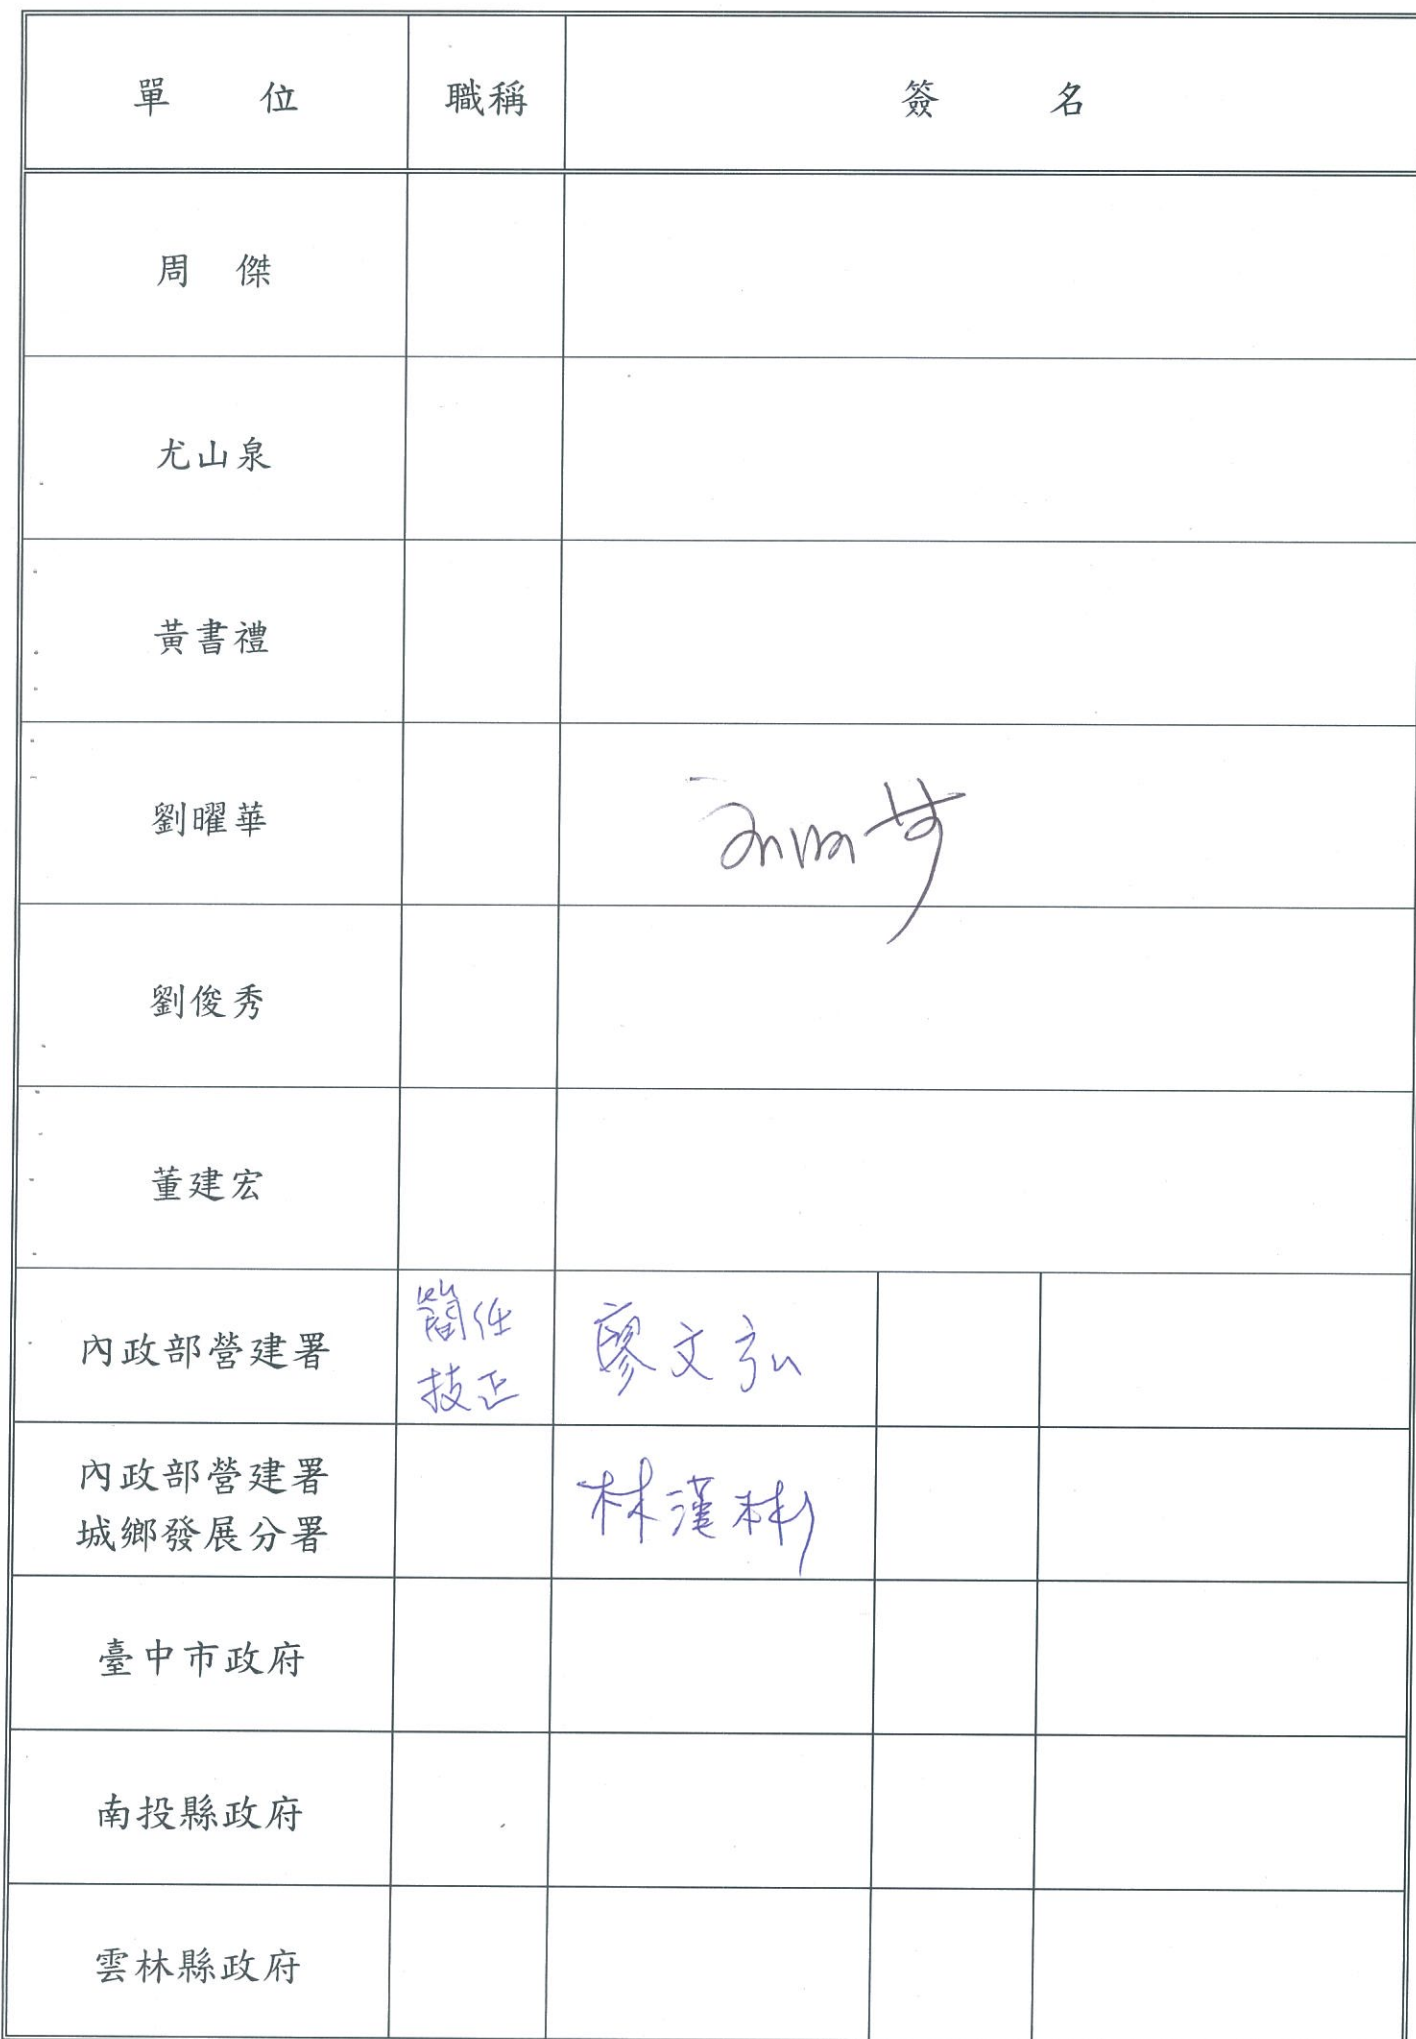 單位 職稱 簽名
周傑
尤山泉
黃書禮
劉曜華
劉俊秀
董建宏
內政部營建署 簡任技正 廖文弘
內政部營建署
城鄉發展分署 林漢彬
臺中市政府
南投縣政府
雲林縣政府